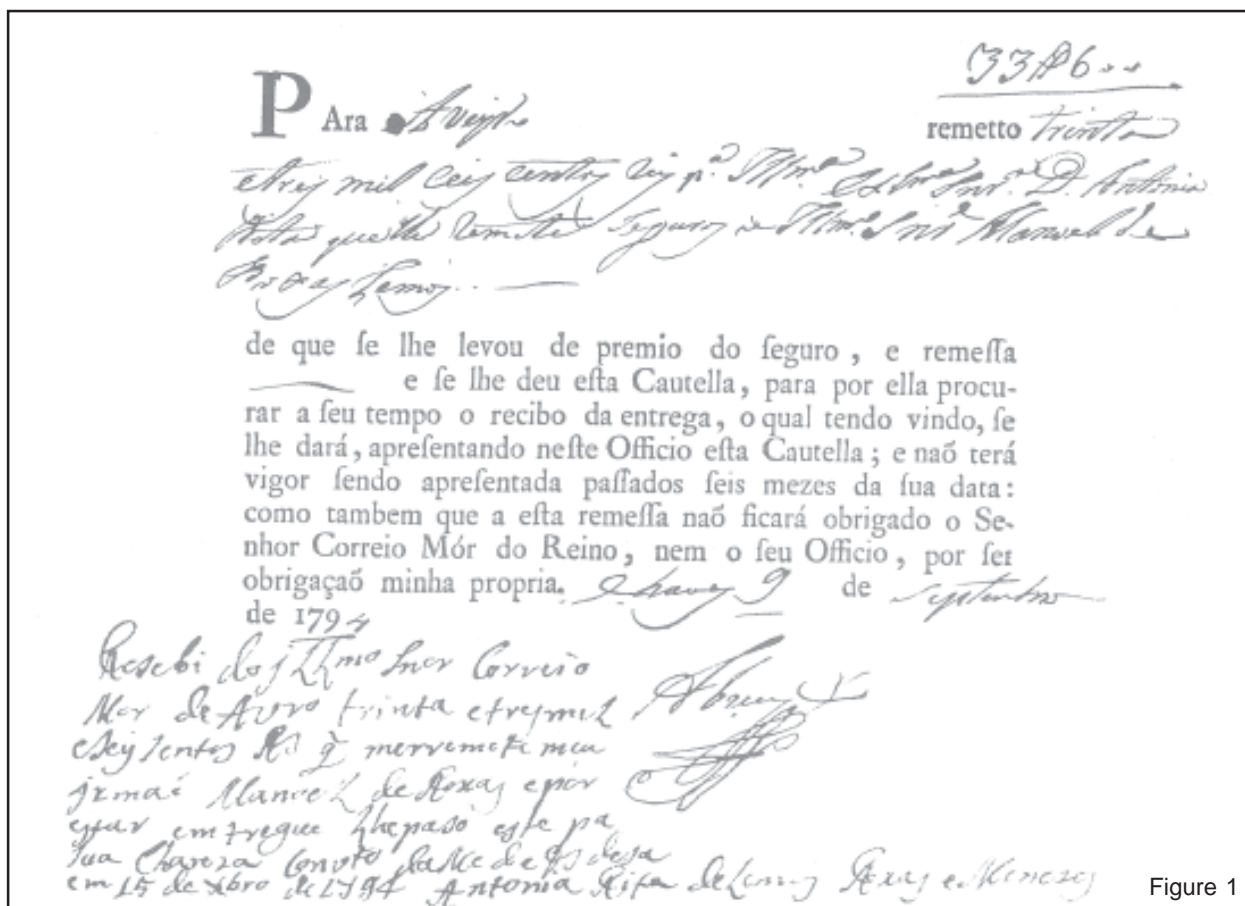 33$6..
PAra Aveiro remetto trinta
e trez mil Ceis centos reis p.ª Illm.ª Snr.ª D. Antonia
Rita que lhe remete Seguros o Illm.º Snr Manoel de
Roxas Lemos
de que ſe lhe levou de premio do ſeguro , e remeſſa
e ſe lhe deu eſta Cautella, para por ella procu-
rar a ſeu tempo o recibo da entrega, o qual tendo vindo, ſe
lhe dará, apreſentando neſte Officio eſta Cautella ; e naõ terá
vigor ſendo apreſentada paſſados ſeis mezes da ſua data:
como tambem que a eſta remeſſa naõ ficará obrigado o Se-
nhor Correio Mór do Reino, nem o ſeu Officio, por ſer
obrigaçaõ minha propria. Chaves 9 de Septembro
de 1794
Resebi do Illmo Snor Correio
Mor de Aveiro trinta e treys mil
e seys sentos Rs q̃ me remete meu
Irmaõ Manoel de Roxas e por
estar emtregue lhe paso este pa
sua Clareza
em 15 de Xbro de 1794 Antonia Rita de Lemos Roxas e Menezes
Abreu
Figure 1